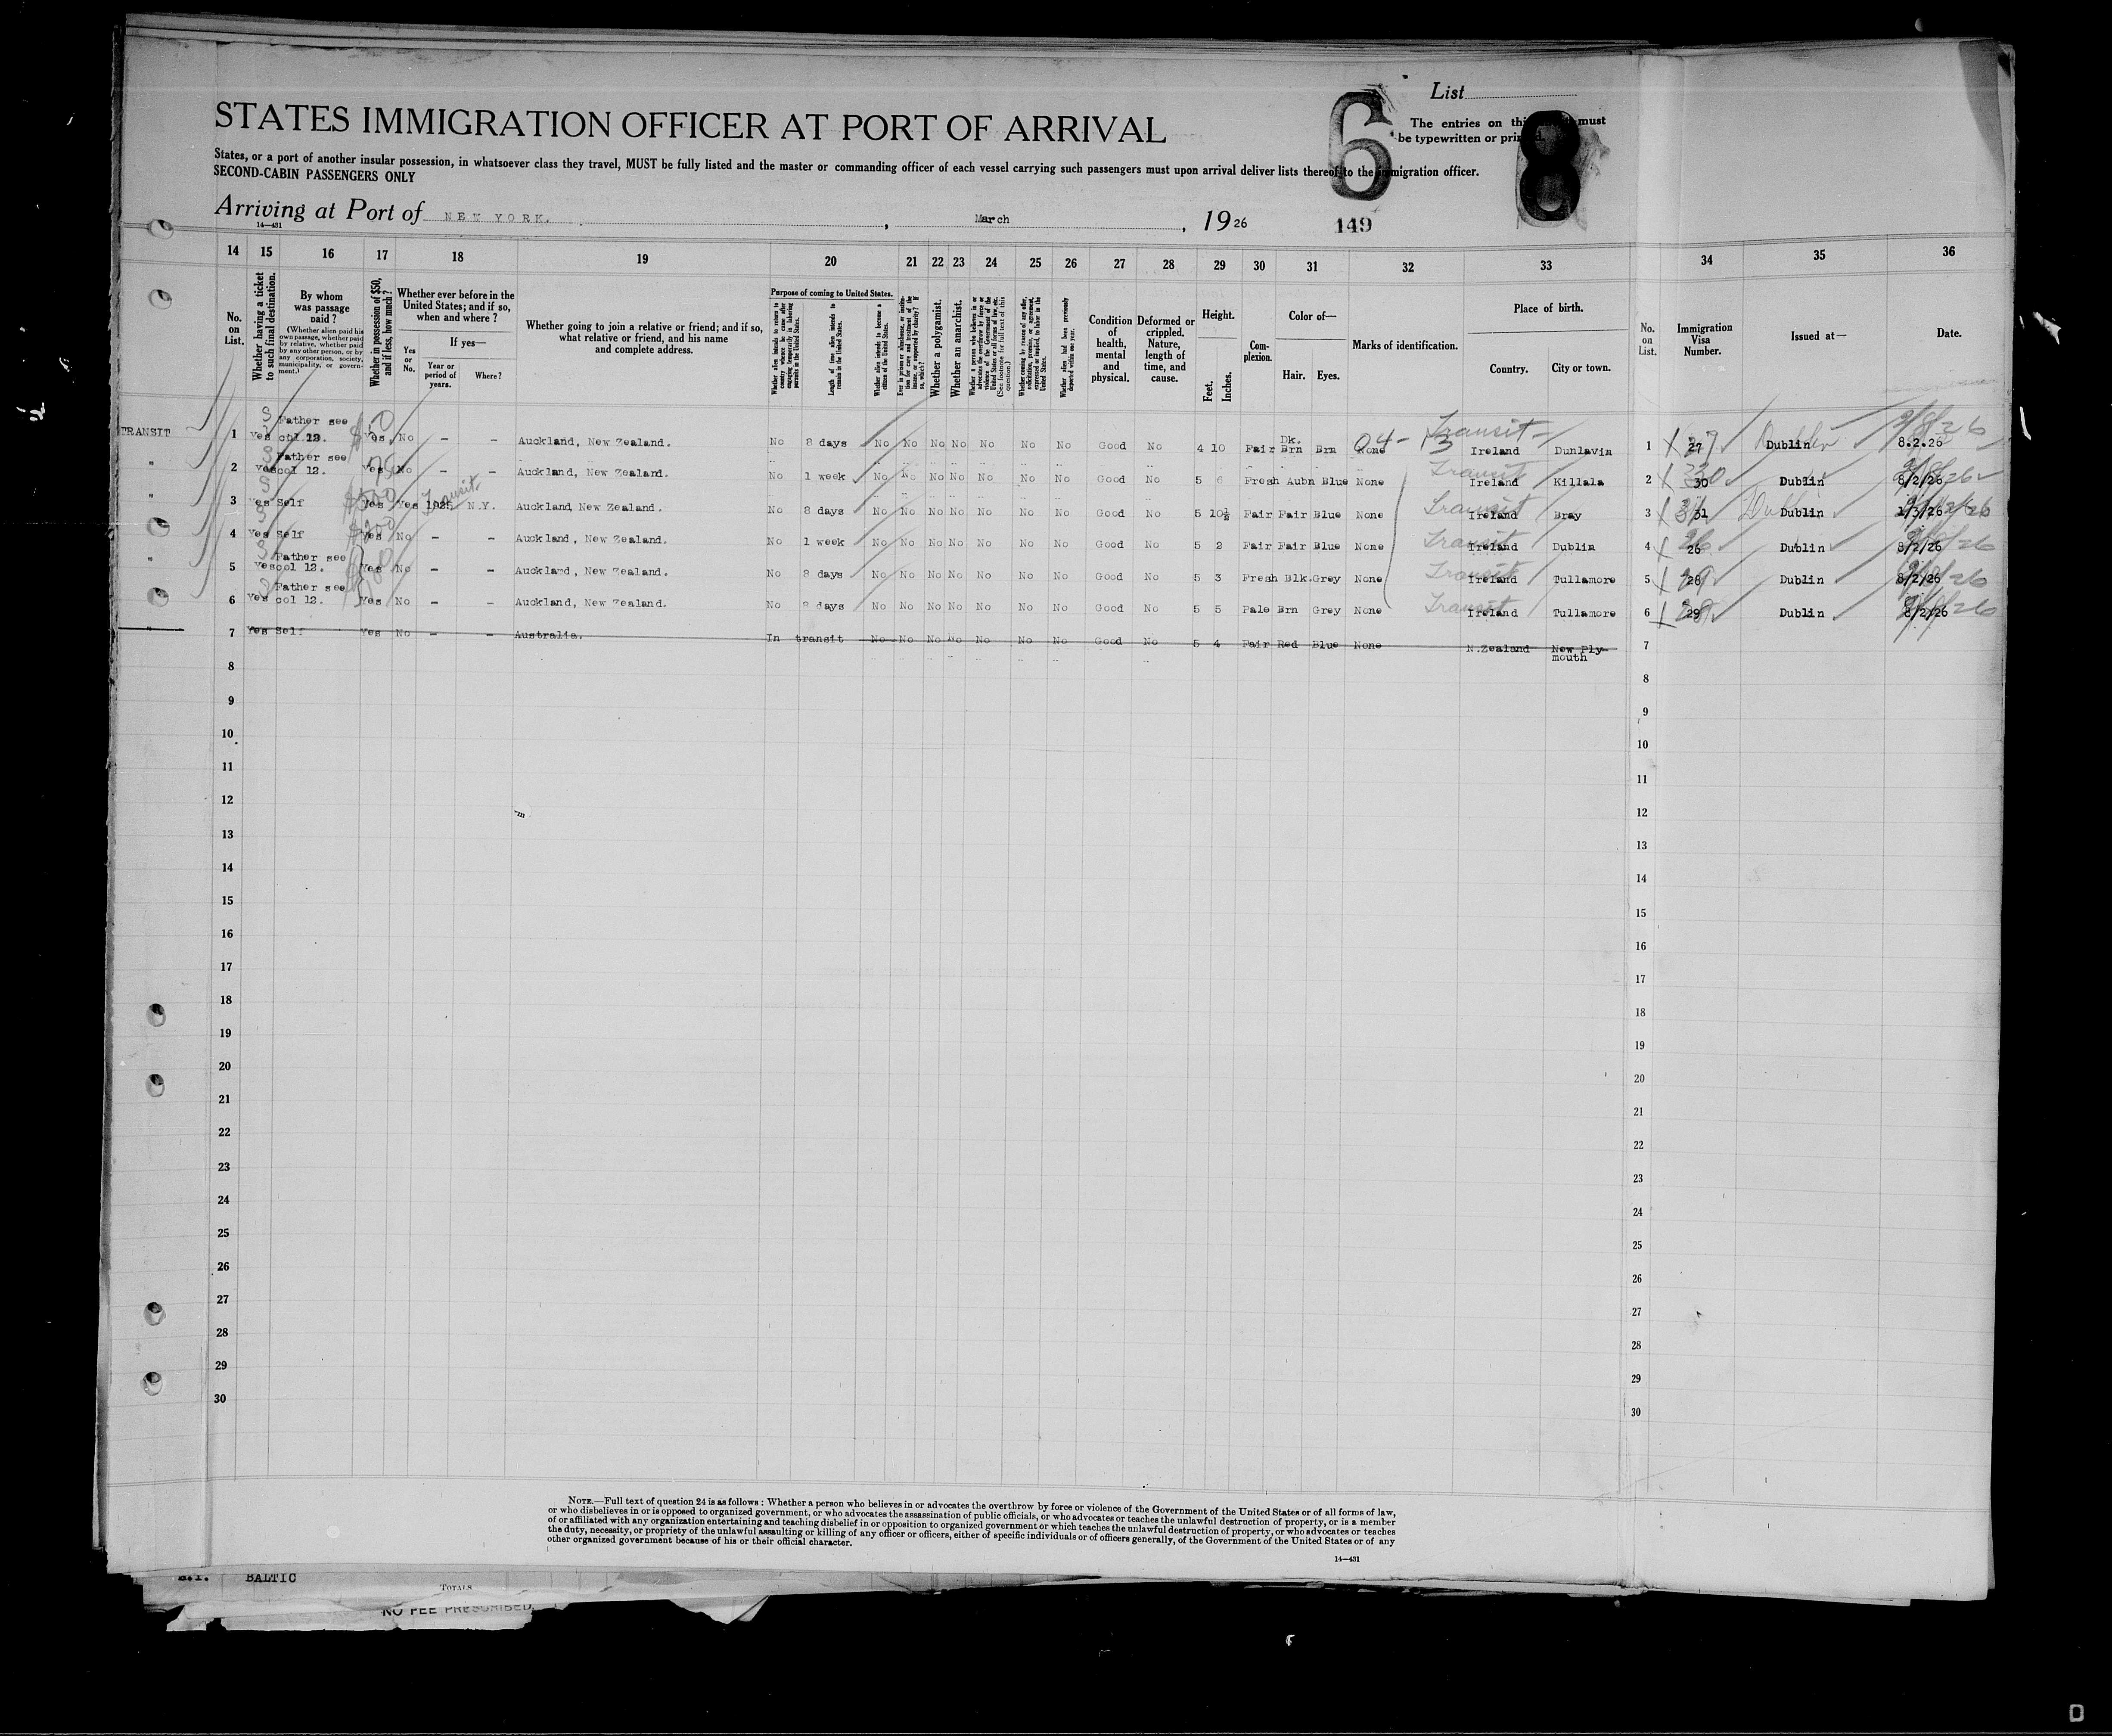 List
6
8
STATES IMMIGRATION OFFICER AT PORT OF ARRIVAL
The entries on this must
be typewritten or printed
States, or a port of another insular possession, in whatsoever class they travel, MUST be fully listed and the master or commanding officer of each vessel carrying such passengers must upon arrival deliver lists thereof to the immigration officer.
SECOND-CABIN PASSENGERS ONLY
Arriving at Port of NEW YORK. , March , 1926 149
14—431
14 15 16 17 18 19 20 21 22 23 24 25 26 27 28 29 30 31 32 33 34 35 36
No. on List.
Whether having a ticket to such final destination.
By whom was passage paid?
(Whether alien paid his own passage, whether paid by relative, whether paid by any other person, or by any corporation, society, municipality, or government.)
Whether in possession of $50, and if less, how much?
Whether ever before in the United States; and if so, when and where?
Yes or No.
If yes—
Year or period of years.
Where?
Whether going to join a relative or friend; and if so, what relative or friend, and his name and complete address.
Purpose of coming to United States.
Length of time alien intends to remain in the United States.
Whether alien intends to become a citizen of the United States.
Whether a polygamist.
Whether an anarchist.
Condition of health, mental and physical.
Deformed or crippled. Nature, length of time, and cause.
Height.
Feet. Inches.
Complexion.
Color of—
Hair. Eyes.
Marks of identification.
Place of birth.
Country. City or town.
No. on List.
Immigration Visa Number.
Issued at—
Date.
TRANSIT 1 Yes Father see col 12. Yes No – – Auckland, New Zealand. No 8 days No No No No No No No Good No 4 10 Fair Dk. Brn Brn None Transit Ireland Dunlavin 1 27 Dublin 8.2.26
" 2 Yes Father see col 12. Yes No – – Auckland, New Zealand. No 1 week No No No No No No No Good No 5 6 Fresh Aubn Blue None Transit Ireland Killala 2 30 Dublin 8/2/26
" 3 Yes Self $500 Yes Yes 1925 Transit N.Y. Auckland New Zealand. No 8 days No No No No No No No Good No 5 10½ Fair Fair Blue None Transit Ireland Bray 3 31 Dublin 1/3/26
4 Yes Self $200 Yes No – – Auckland, New Zealand. No 1 week No No No No No No No Good No 5 2 Fair Fair Blue None Transit Ireland Dublin 4 26 Dublin 8/2/26
" 5 Yes Father see col 12. Yes No – – Auckland, New Zealand. No 8 days No No No No No No No Good No 5 3 Fresh Blk. Grey None Transit Ireland Tullamore 5 28 Dublin 8/2/26
6 Yes Father see col 12. Yes No – – Auckland, New Zealand. No 8 days No No No No No No No Good No 5 5 Pale Brn Grey None Transit Ireland Tullamore 6 29 Dublin 8/2/26
" 7 Yes Self Yes No – – Australia. In transit No No No No No No No Good No 5 4 Fair Red Blue None N.Zealand New Plymouth 7
8 8
9 9
10 10
11 11
12 12
13 13
14 14
15 15
16 16
17 17
18 18
19 19
20 20
21 21
22 22
23 23
24 24
25 25
26 26
27 27
28 28
29 29
30 30
NOTE.—Full text of question 24 is as follows: Whether a person who believes in or advocates the overthrow by force or violence of the Government of the United States or of all forms of law,
or who disbelieves in or is opposed to organized government, or who advocates the assassination of public officials, or who advocates or teaches the unlawful destruction of property, or is a member
of or affiliated with any organization entertaining and teaching disbelief in or opposition to organized government or which teaches the unlawful destruction of property, or who advocates or teaches
the duty, necessity, or propriety of the unlawful assaulting or killing of any officer or officers, either of specific individuals or of officers generally, of the Government of the United States or of any
other organized government because of his or their official character.
14—431
BALTIC
TOTALS
NO FEE PRESCRIBED